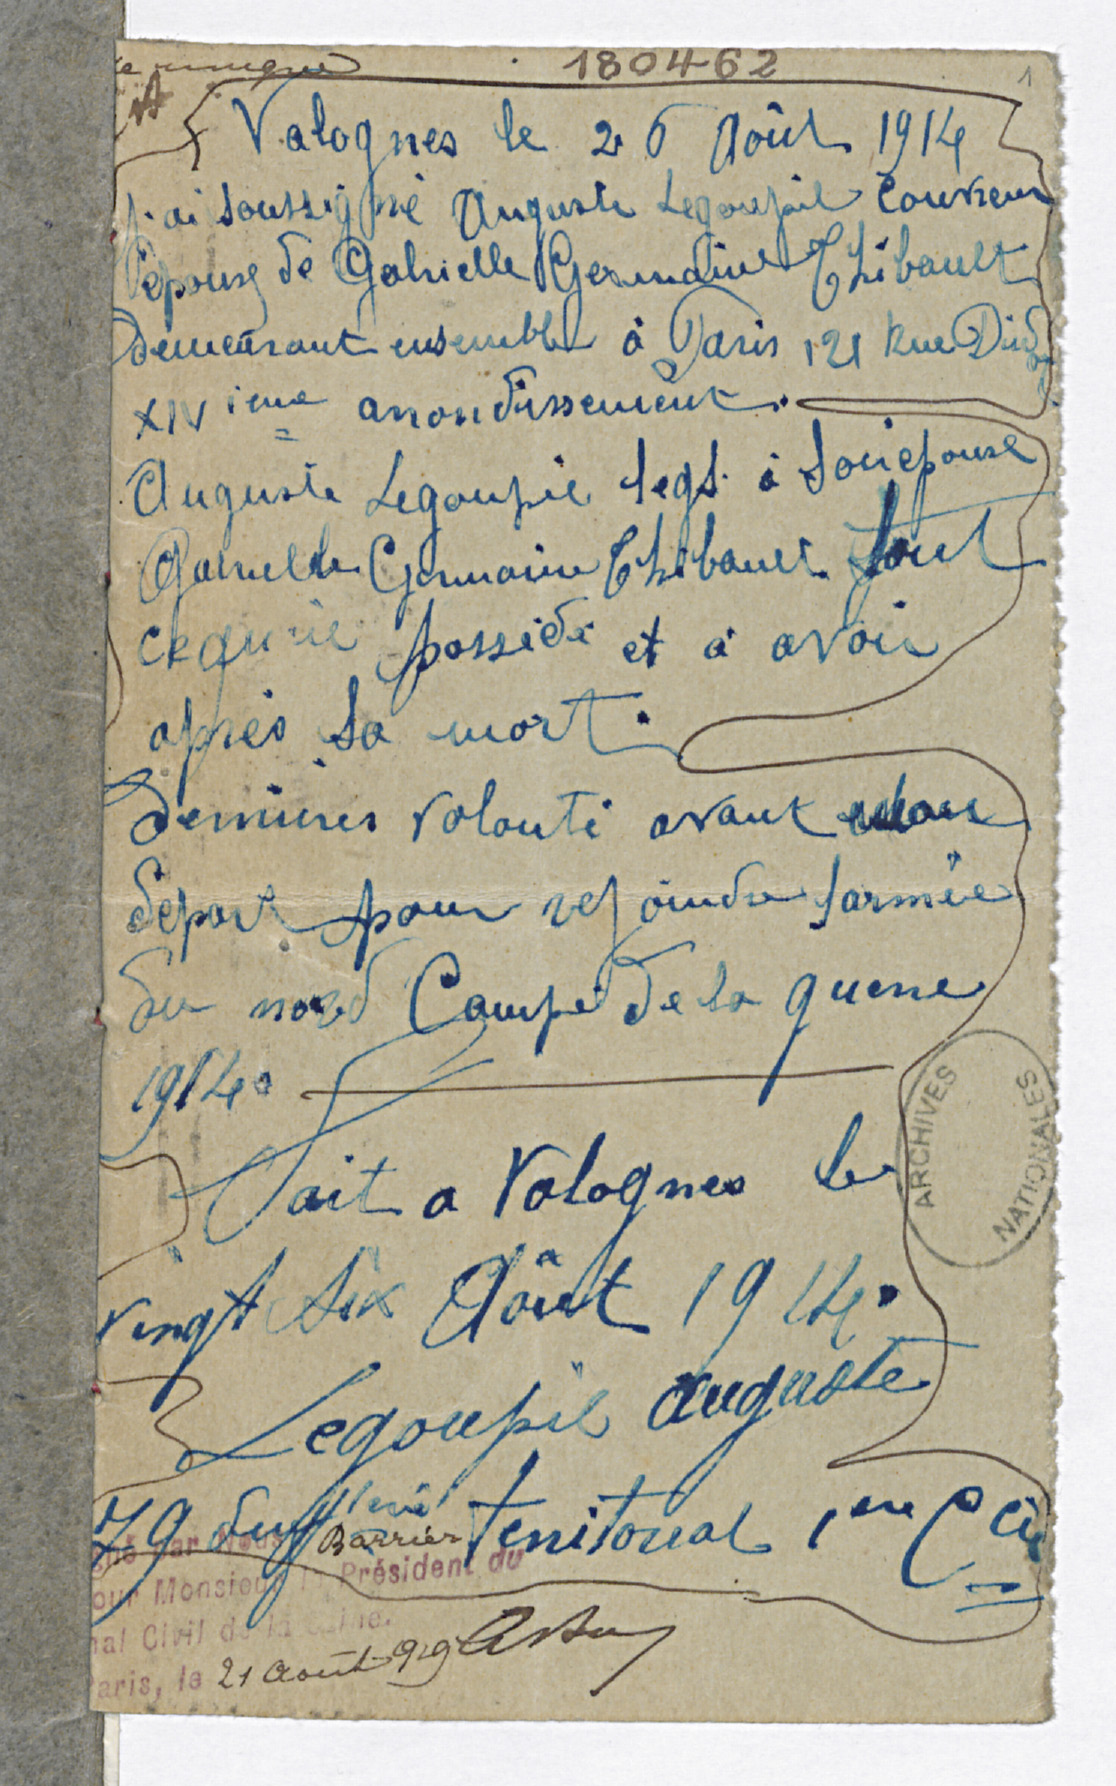 unique 180462 1
Valognes le 26 Août 1914
j.ai soussigné Auguste Legoupil Couvreur
époux de Gabrielle Germaine Thibault
demeurant ensemble à Paris 121 Rue Did
XIV ieme arrondissement.
Auguste Legoupil legs à son épouse
Gabrielle Germaine Thibault tout
ce qu'il possède et à avoir
après sa mort.
dernières volonté avant mon
départ pour rejoindre l'armée
du nord Campé de la guerre
1914.
Fait a Valognes le
vingt six Août 1914.
Legoupil auguste
79 territorial 1ere Cie
par Nous Barrier
our Monsieur le Président du
nal Civil de la Seine.
aris, le 21 août 919
ARCHIVES NATIONALES